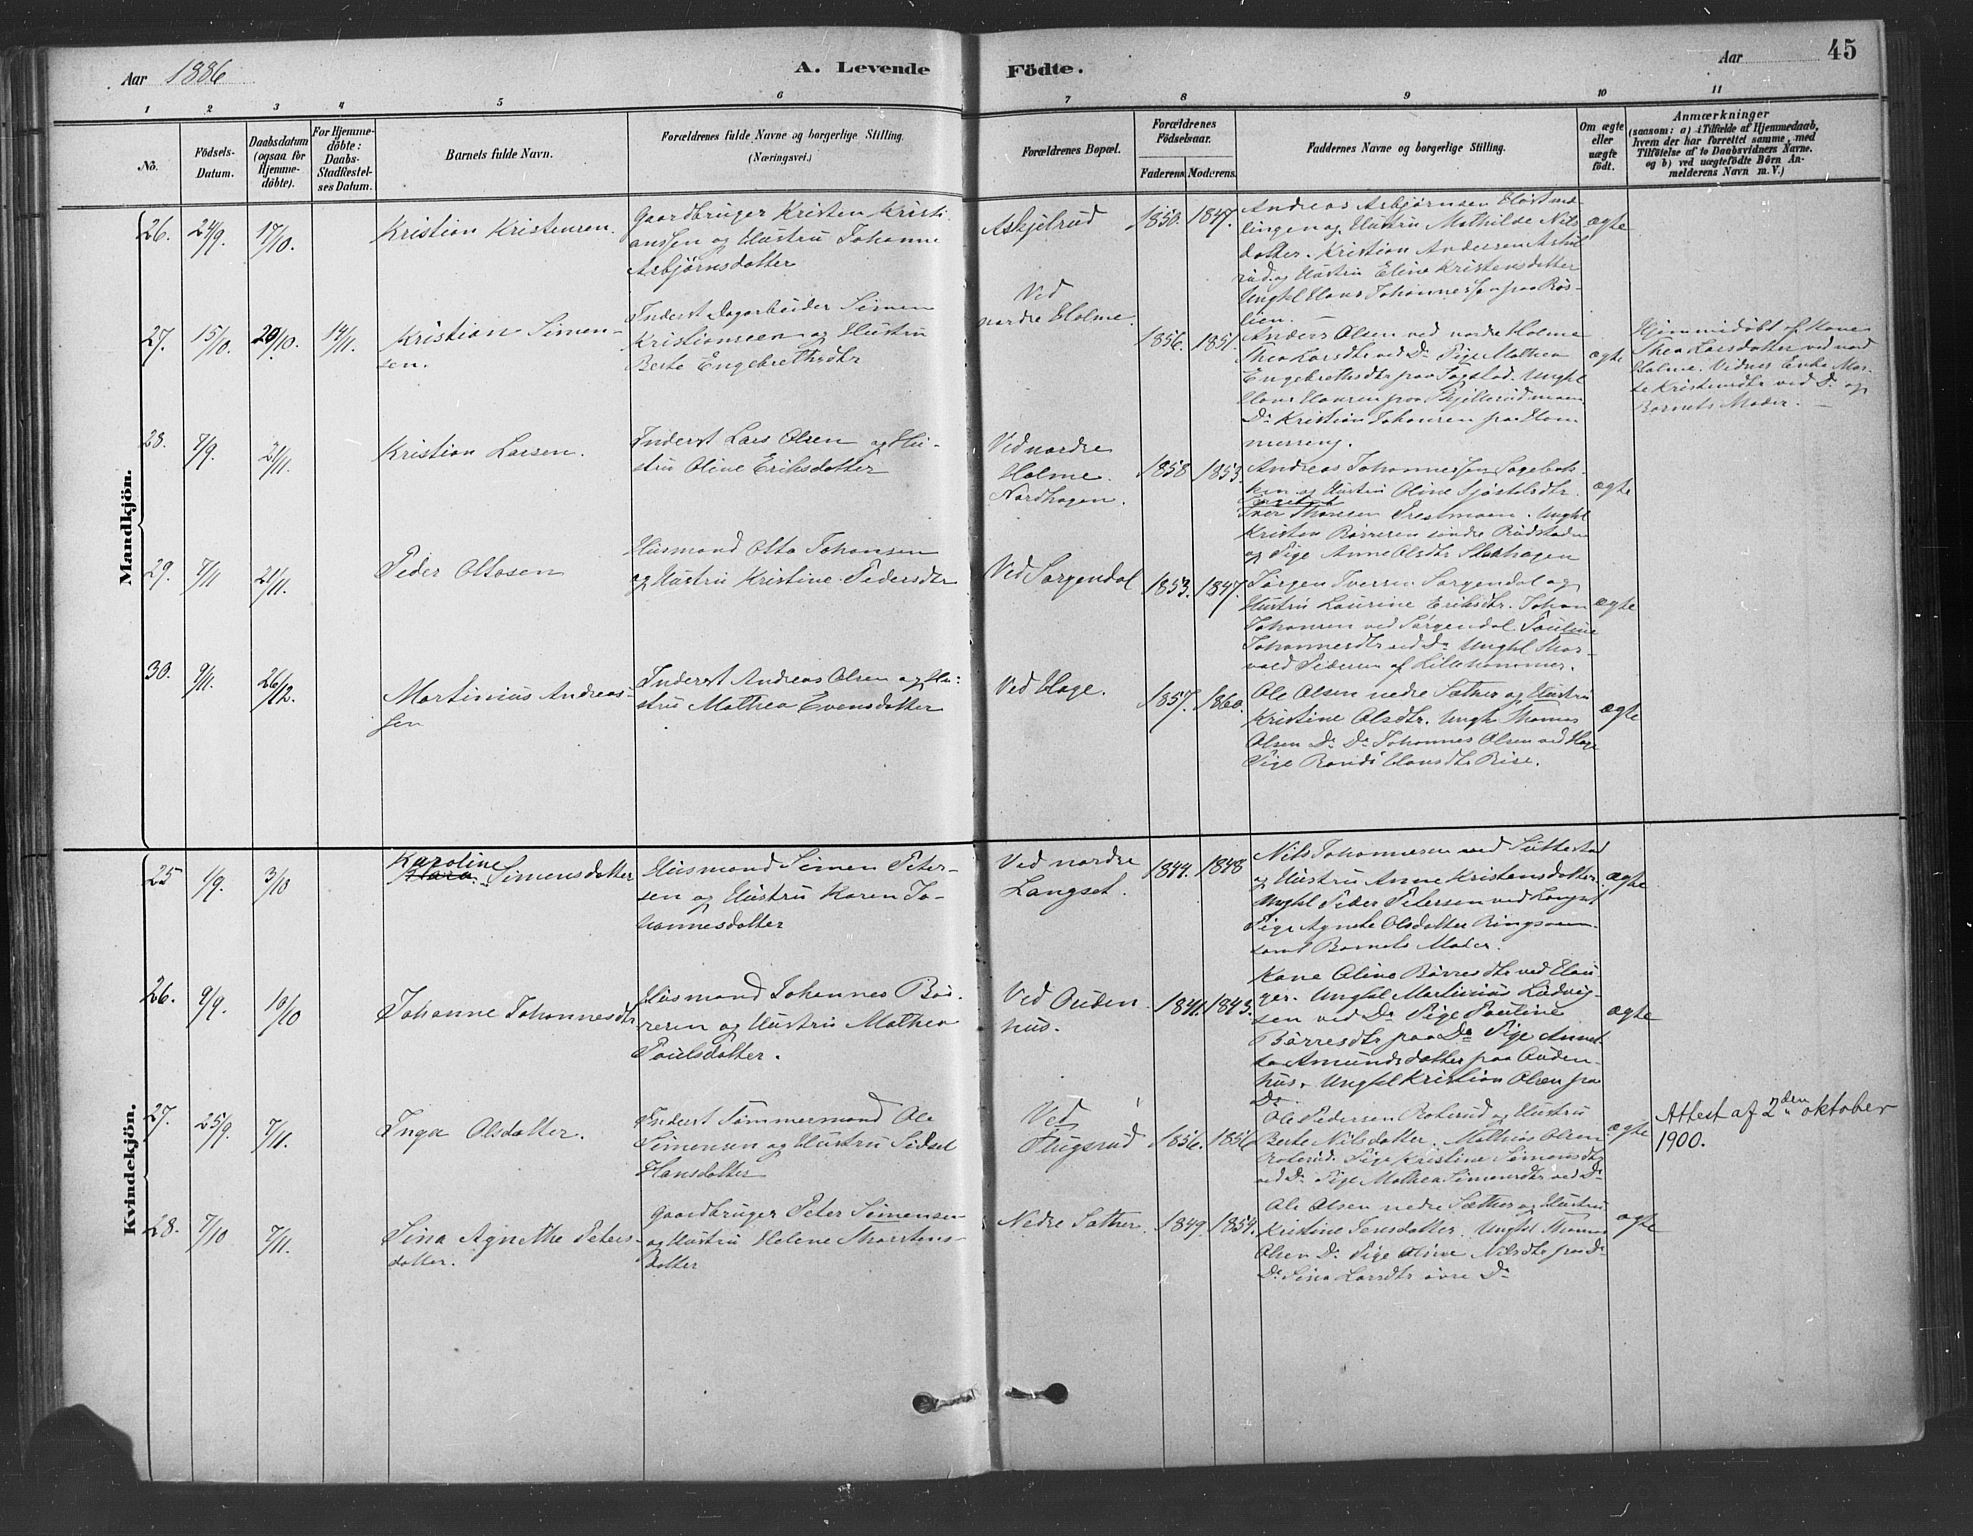 Aar 1886
A. Levende Födte.
Aar 45
1 2 3 4 5 6 7 8 9 10 11
No.
Födsels-
Datum.
Daabsdatum
(ogsaa for
Hjemme-
döbte).
For Hjemme-
döbte:
Daabs-
Stadfæstel-
ses Datum.
Barnets fulde Navn.
Forældrenes fulde Navne og borgerlige Stilling.
(Næringsvei.)
Forældrenes Bopæl.
Forældrenes
Födselsaar.
Faderens Moderens.
Faddernes Navne og borgerlige Stilling.
Om ægte
eller
uægte
födt.
Anmærkninger
(saasom: a) i Tilfælde af Hjemmedaab,
hvem der har forrettet samme, med
Tilföielse af to Daabsvidners Navne.
og b) ved uægtefödte Börn An-
melderens Navn m. V.)
Mandkjön.
26. 24/9. 17/10.
Kristian Kristensen.
Gaardbruger Kristen Kristi-
ansen og Hustru Johanne
Asbjørnsdatter
Askjelrud
1850. 1847.
Andreas Asbjørnsen
og Hustru Mathilde Nils
datter. Kristian Andersen
og Hustru Eline Kristensdatter
Ungkl Hans Johannessen paa Røs-
lien.
ægte
27. 15/10. 29/10. 14/11.
Kristian Simen-
sen.
Inderst Dagarbeider Simen
Kristiansen og Hustru
Berte Engebrethsdtr
Ved
nordre Holme.
1856. 1851
Anders Olsen ved nordre Holme
Thea Larsdtr ved Do Pige Mathea
Engebrethsdtr paa Fogstad. Ungkl
Hans Hansen paa
Do Kristian Johansen paa Ham-
mereng.
ægte
Hjemmedøbt af Kone
Thea Larsdatter ved nord
Holme. Vidner Enke Mar-
te Kristensdtr ved Do og
Barnets Moder.
28. 7/9. 7/11.
Kristian Larsen.
Inderst Lars Olsen og Hu-
stru Oline Eriksdatter
Ved nordre
Holme.
Nordhagen.
1858 1853.
Andreas Johannessen Sagebak-
ken og Hustru Oline
Iver Thoresen Prestmoen. Ungkl
Kristen Børresen søndre Rudstaden
og Pige Anne Olsdtr
ægte
29. 7/11 21/11.
Peder Ottosen
Husmand Otto Johansen
og Hustru Kristine Pedersdtr
Ved Sorgendal
1853. 1847.
Jørgen Iversen Sorgendal og
Hustru Laurine Eriksdtr. Johan
Johansen ved Sorgendal Pauline
Johannesdtr ved Do Ungkl Thor-
vald Pedersen af Lillehammer.
ægte
30. 9/11. 26/12.
Martinius Andreas-
sen
Inderst Andreas Olsen og Hu-
stru Mathea Evensdatter
Ved Hage.
1857. 1860.
Ole Olsen nedre Sæther og Hustru
Kristine Olsdtr. Ungk Thomas
Olsen Do Do Johannes Olsen ved Hage
Pige Randi Hansdtr Rise.
ægte
Kvindekjön.
25 1/9. 3/10
Karoline
Simensdatter
Husmand Simen Peter-
sen og Hustru Karen Jo-
hannesdatter
Ved nordre
Langset.
1844. 1848
Nils Johannesen ved Sutterstad
og Hustru Anne Kristensdatter.
Ungkl Peder Petersen ved Langset
Pige Agnethe Olsdatter Ringsveen
samt Barnets Moder.
ægte
26. 9/9. 10/10
Johanne Johannesdtr
Husmand Johannes Bør-
resen og Hustru Mathea
Poulsdatter.
Ved Auden-
hus.
1841. 1843.
Kone Oline Børresdtr ved Hau-
ger. Ungkl Martinius Ludvig-
sen ved Do Pige Pauline
Børresdtr paa Do Pige Annet-
te Amundsdatter paa Auden-
hus. Ungkl Kristian Olsen paa
Do
ægte
27. 25/9. 7/11.
Inga Olsdatter.
Inderst Tømmermand Ole
Simensen og Hustru Sidsel
Hansdatter
Ved
Flugsrud
1856. 1856
Ole Pedersen Roterud og Hustru
Berte Nilsdatter. Mathias Olsen
Roterud. Pige Kristine Simensdtr
ved Do Pige Mathea Simensdtr ved Do
ægte
Attest af 2den oktober
1900.
28. 7/10 7/11.
Sina Agnethe Peters-
datter.
Gaardbruger Peter Simensen
og Hustru Helene Thorstens-
datter
Nedre Sæther.
1849. 1854.
Ole Olsen nedre Sæther og Hustru
Kristine Jensdatter. Ungkl Thomas
Olsen Do Pige Oline Nilsdtr paa Do
Do Sina Larsdtr øvre Do
ægte